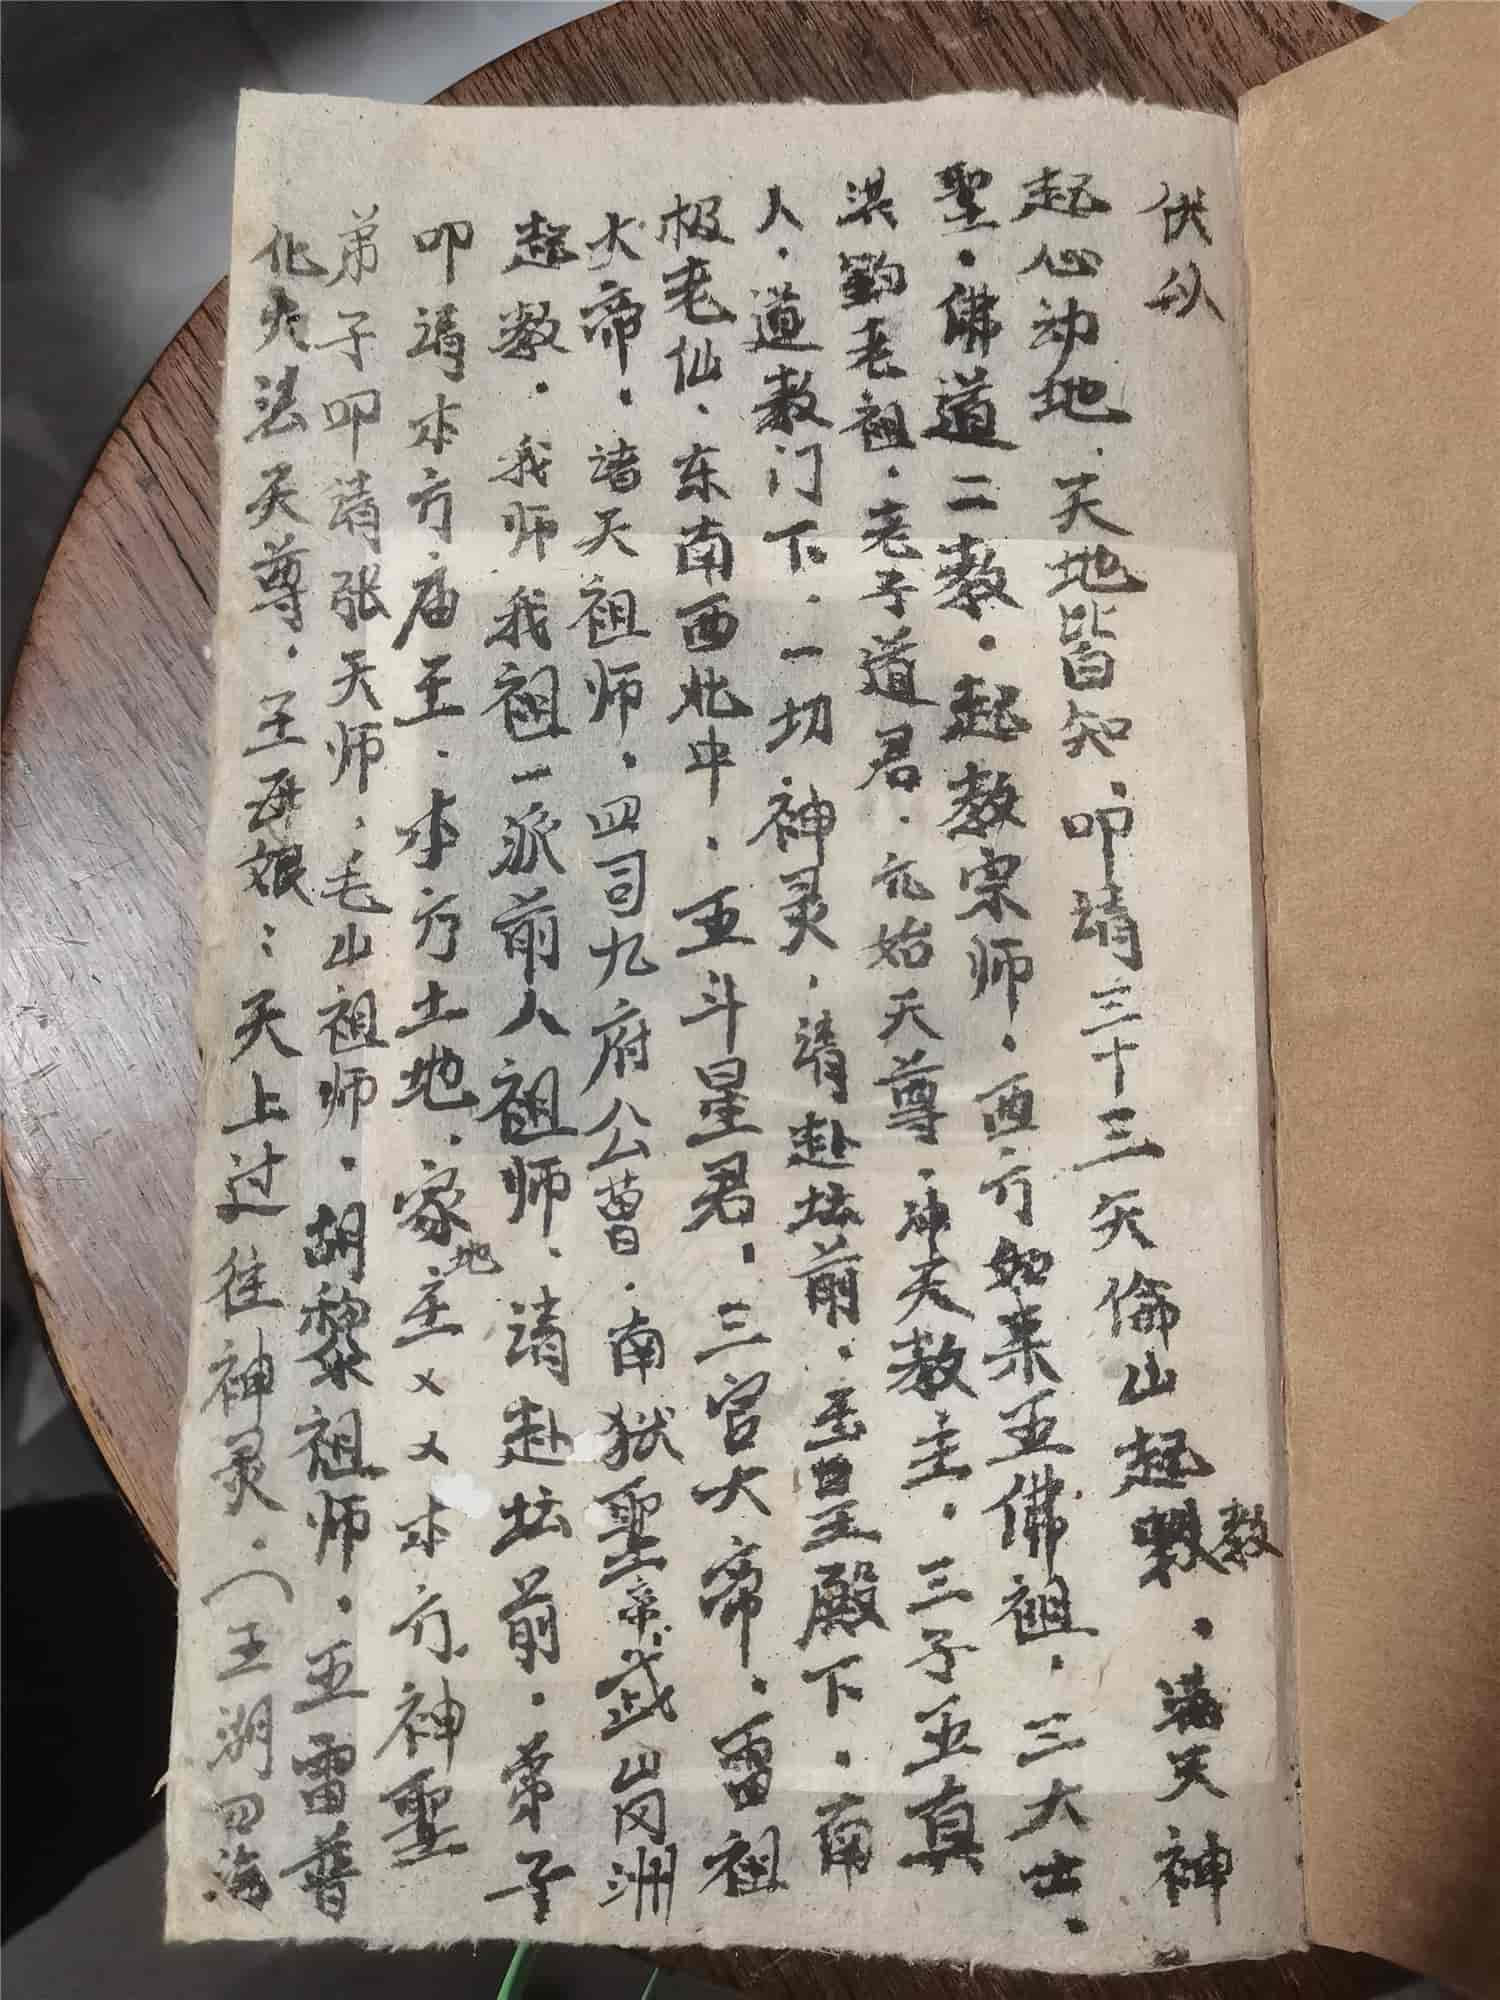 伏以
起心动地．天地皆知．叩请三十三天倫山起教．满天神
聖．佛道二教．起教宗师．西方如来五佛祖．三大士．
洪鈞老祖．老子道君．元始天尊．冲天教主．三子五真
人．道教门下．一切神灵．请赴坛前．玉皇殿下．南
极老仙．东南西北中．五斗星君．三官大帝．雷祖
大帝．诸天祖师．四司九府公曹．南狱聖帝武岗洲
起教．我师我祖一派前人祖师．请赴坛前．弟子
叩请本方庙王．本方土地．家地主㐅㐅本方神聖
弟子叩请张天师．毛山祖师．胡黎祖师．五雷普
化大法天尊．王母娘：天上过往神灵．（五湖四海